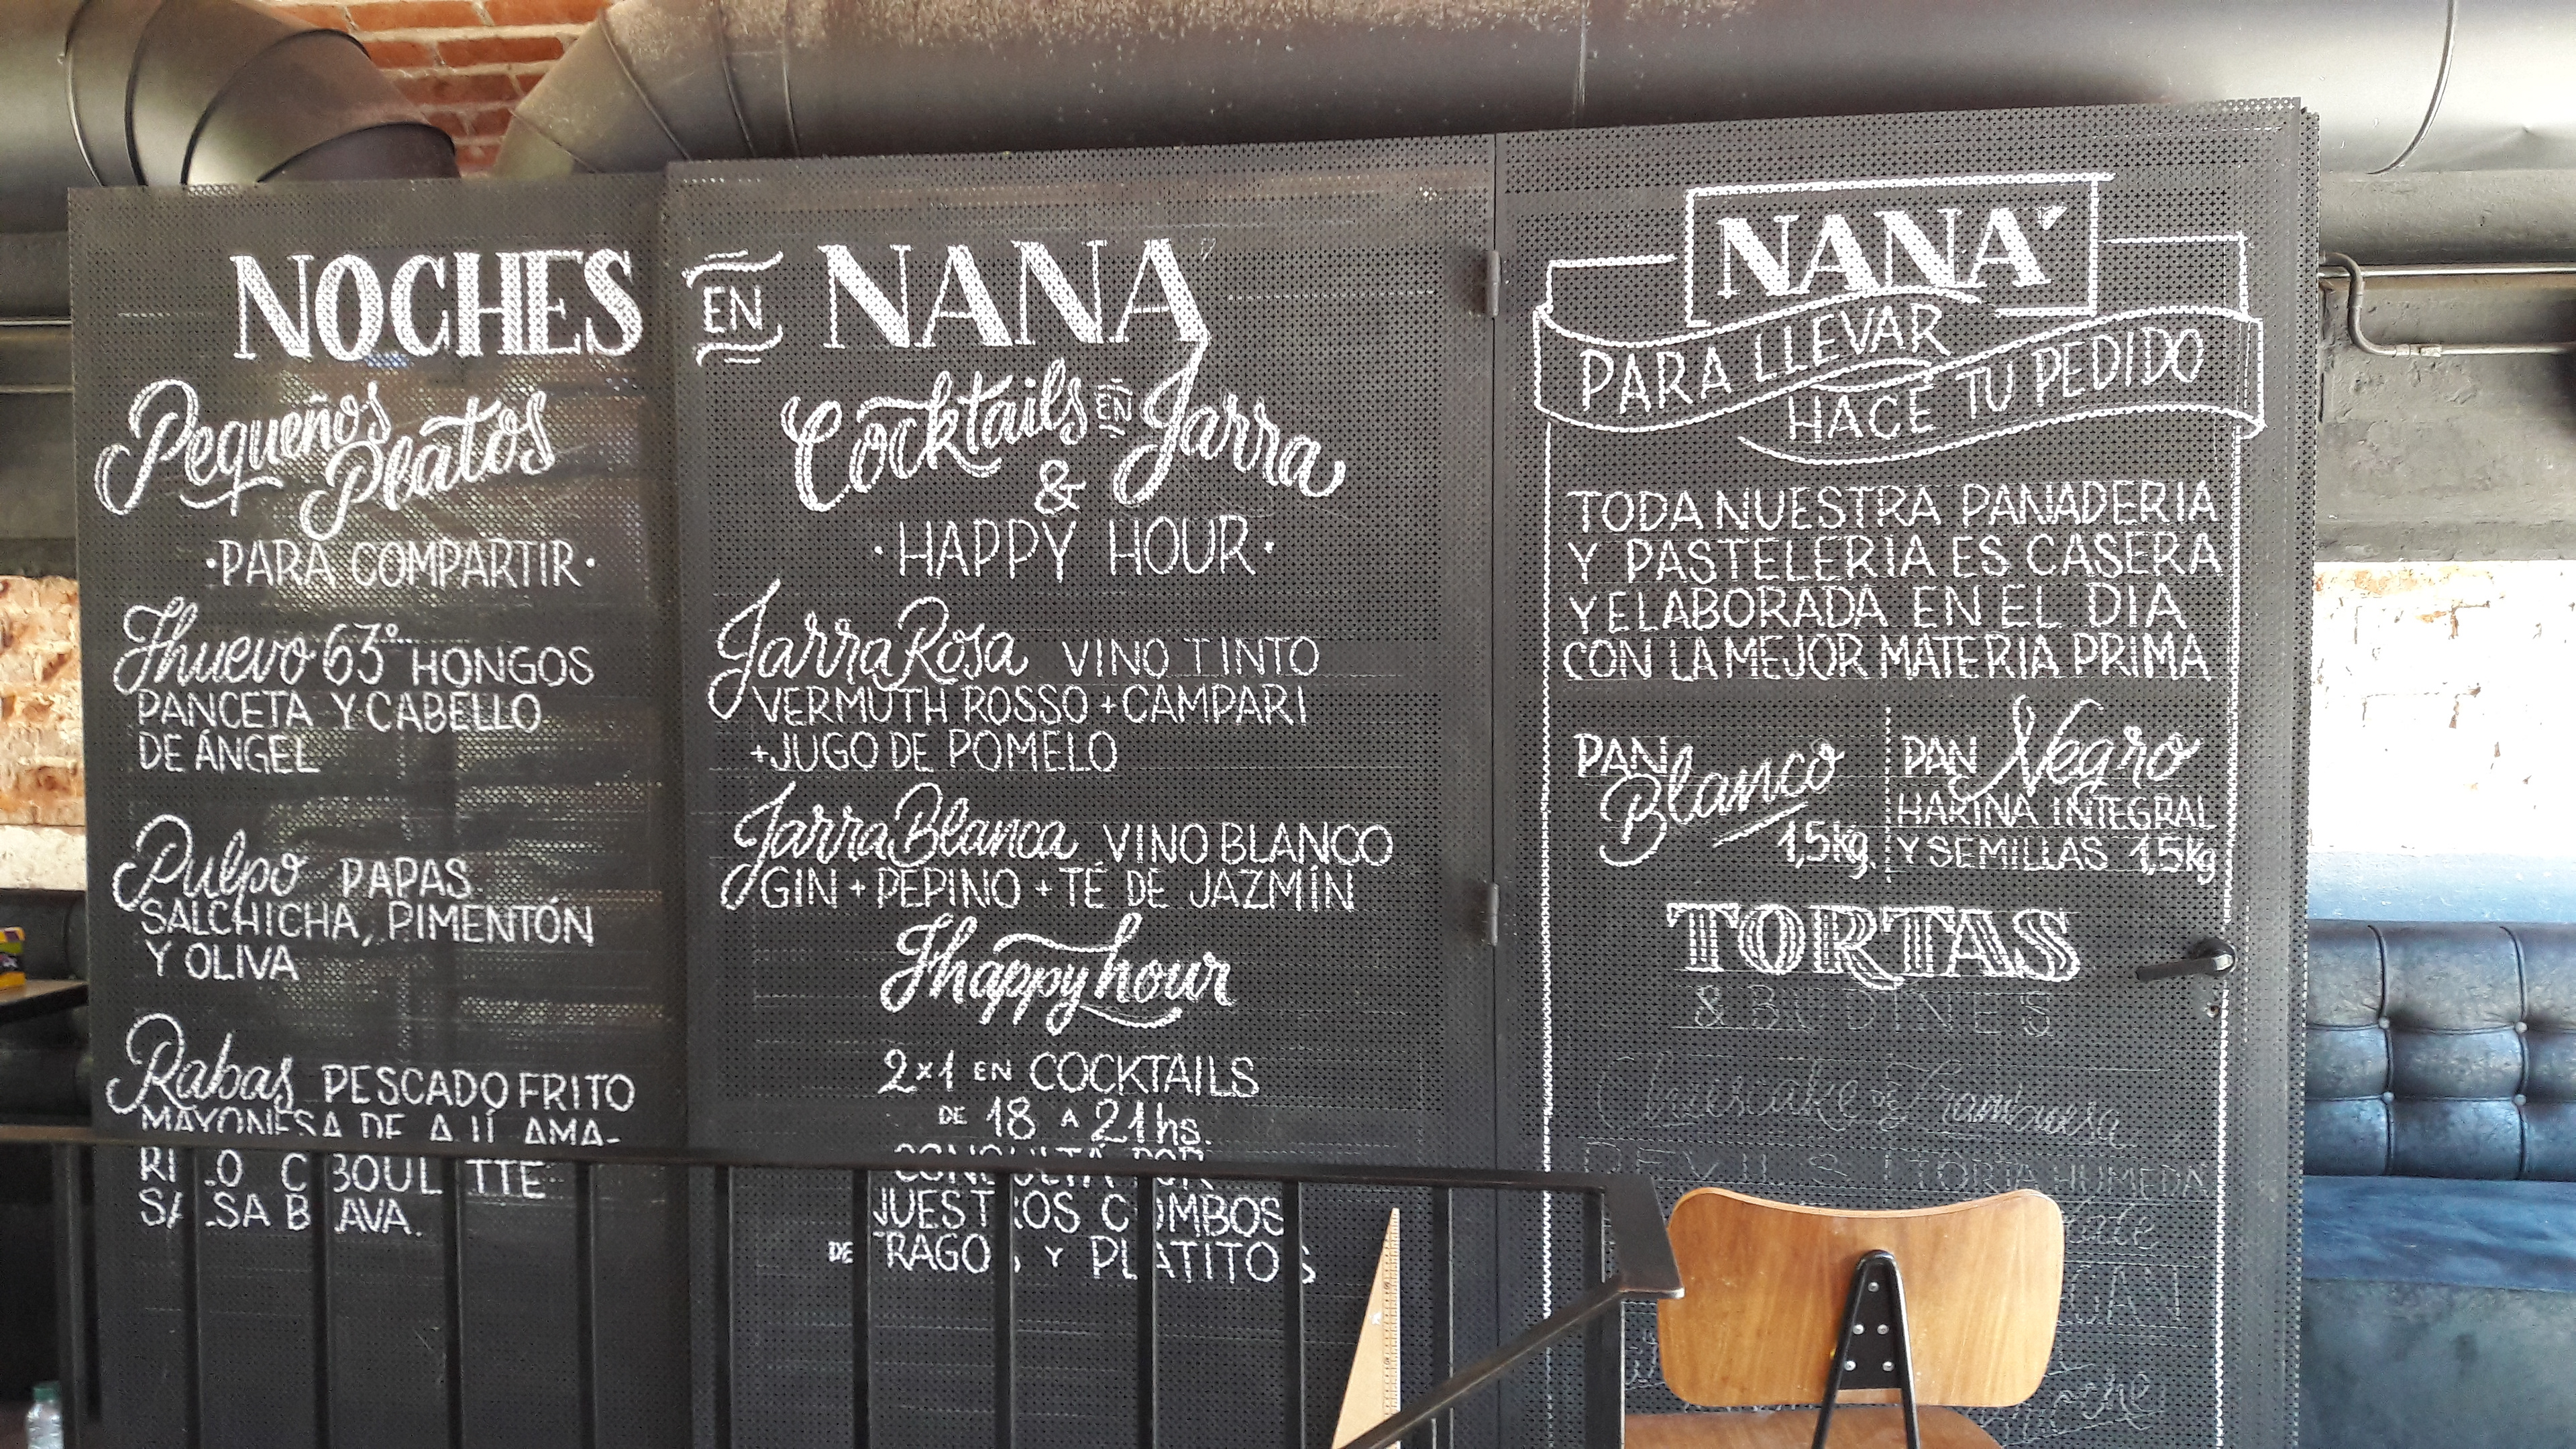 NOCHES
Pequeños
Platos
·PARA COMPARTIR·
Huevo 63° HONGOS
PANCETA Y CABELLO
DE ÁNGEL
Pulpo PAPAS
SALCHICHA, PIMENTÓN
Y OLIVA
Rabas PESCADO FRITO
MAYONESA DE AJÍ AMA-
RILLO CIBOULETTE
SALSA BRAVA.
EN NANÁ
Cocktails EN Jarra
&
·HAPPY HOUR·
Jarra Rosa VINO TINTO
VERMUTH ROSSO + CAMPARI
+ JUGO DE POMELO
Jarra Blanca VINO BLANCO
GIN + PEPINO + TÉ DE JAZMÍN
Happy hour
2x1 EN COCKTAILS
DE 18 A 21hs.
CONSULTÁ POR
NUESTROS COMBOS
DE TRAGOS Y PLATITOS
NANÁ
PARA LLEVAR
HACE TU PEDIDO
TODA NUESTRA PANADERIA
Y PASTELERIA ES CASERA
Y ELABORADA EN EL DIA
CON LA MEJOR MATERIA PRIMA
PAN Blanco
1,5kg.
PAN Negro
HARINA INTEGRAL
Y SEMILLAS 1,5kg
TORTAS
& BUDINES
Cheescake DE Frambuesa
TORTA HÚMEDA